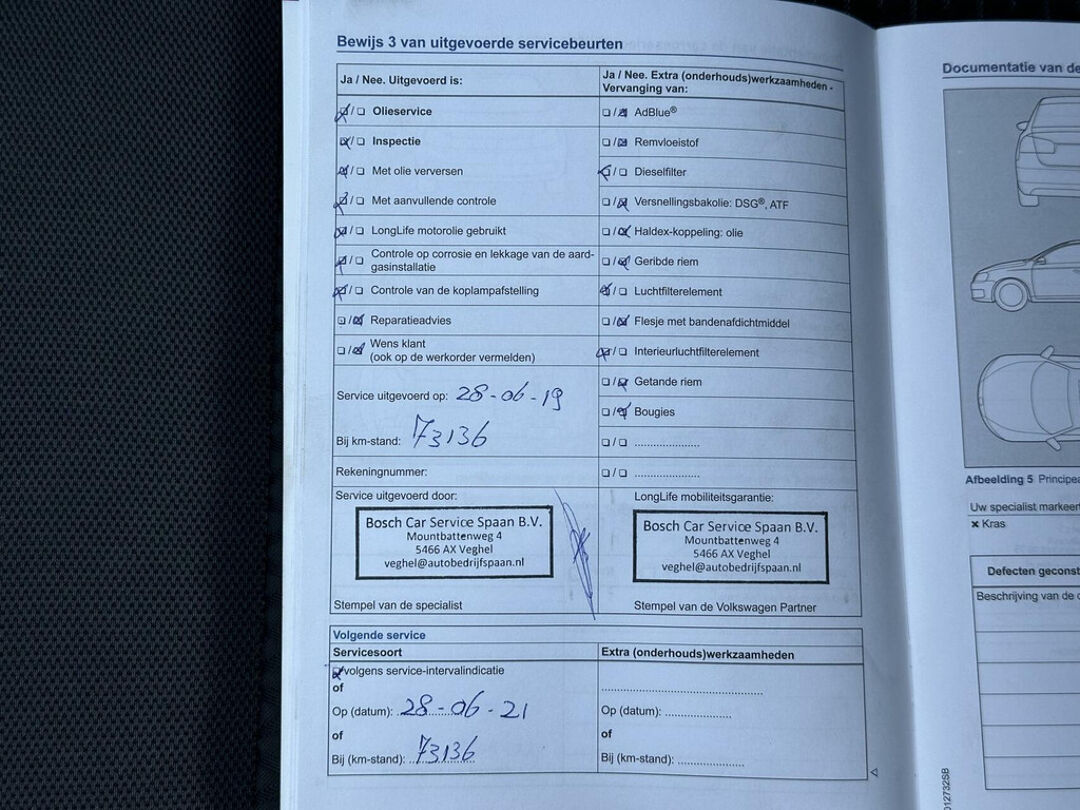 Bewijs 3 van uitgevoerde servicebeurten
Ja / Nee. Uitgevoerd is:
☒/☐ Olieservice
☒/☐ Inspectie
☒/☐ Met olie verversen
☒/☐ Met aanvullende controle
☒/☐ LongLife motorolie gebruikt
☒/☐ Controle op corrosie en lekkage van de aard-
gasinstallatie
☒/☐ Controle van de koplampafstelling
☐/☒ Reparatieadvies
☐/☒ Wens klant
(ook op de werkorder vermelden)
Service uitgevoerd op: 28-06-19
Bij km-stand: 73136
Rekeningnummer:
Service uitgevoerd door:
Bosch Car Service Spaan B.V.
Mountbattenweg 4
5466 AX Veghel
veghel@autobedrijfspaan.nl
Stempel van de specialist
Ja / Nee. Extra (onderhouds)werkzaamheden -
Vervanging van:
☐/☒ AdBlue®
☐/☒ Remvloeistof
☒/☐ Dieselfilter
☐/☒ Versnellingsbakolie: DSG®, ATF
☐/☒ Haldex-koppeling: olie
☐/☒ Geribde riem
☒/☐ Luchtfilterelement
☐/☒ Flesje met bandenafdichtmiddel
☒/☐ Interieurluchtfilterelement
☐/☒ Getande riem
☐/☒ Bougies
☐/☐ ....................
☐/☐ ....................
LongLife mobiliteitsgarantie:
Bosch Car Service Spaan B.V.
Mountbattenweg 4
5466 AX Veghel
veghel@autobedrijfspaan.nl
Stempel van de Volkswagen Partner
Volgende service
Servicesoort
☒ volgens service-intervalindicatie
of
Op (datum): 28-06-21
of
Bij (km-stand): 73136
Extra (onderhouds)werkzaamheden
..................................................
Op (datum): ....................
of
Bij (km-stand): ....................
Documentatie van de
Afbeelding 5 Principe
Uw specialist markeer
× Kras
Defecten geconst
Beschrijving van de
012732SB